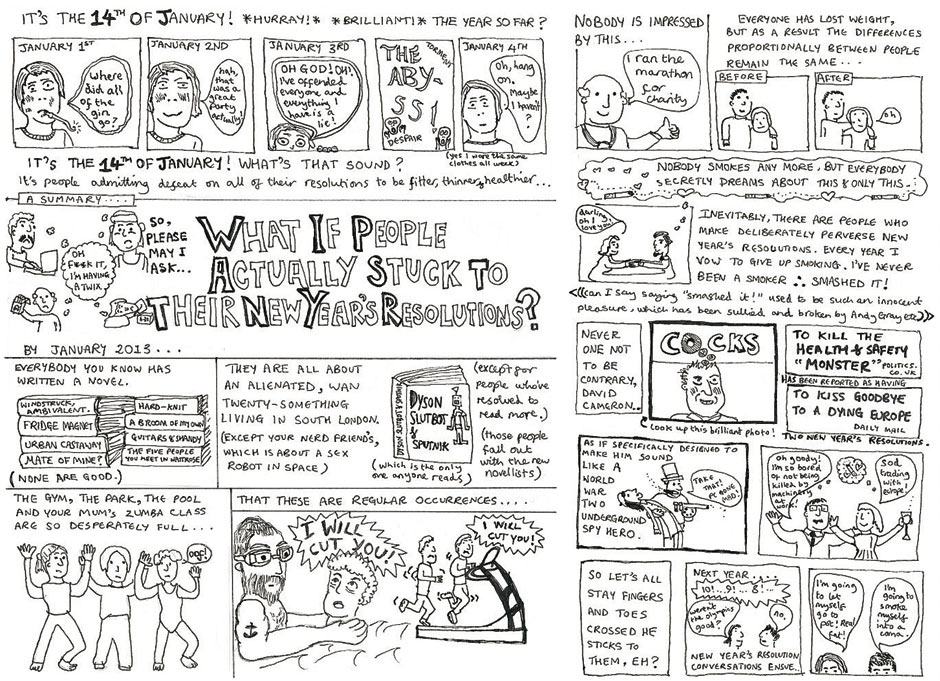 IT'S THE 14TH OF JANUARY! *HURRAY!* *BRILLIANT!* THE YEAR SO FAR?
JANUARY 1ST
Where
did all
of the
gin
go?
JANUARY 2ND
hah,
that
was a
great
party
actually!
JANUARY 3RD
OH GOD! OH!
I've offended
everyone and
everything I
have is a
lie!
THE
ABY-
SS!
TORMENT
DESPAIR
JANUARY 4TH
Oh, hang
on.
maybe
I haven't
?
(yes I wore the same
clothes all week)
IT'S THE 14TH OF JANUARY! WHAT'S THAT SOUND?
It's people admitting defeat on all of their resolutions to be fitter, thinner, healthier...
A SUMMARY....
OH
F*CK IT,
I'M HAVING
A TWIX.
SO,
PLEASE
MAY I
ASK...
WHAT IF PEOPLE
ACTUALLY STUCK TO
THEIR NEW YEAR'S RESOLUTIONS?
BY JANUARY 2013...
EVERYBODY YOU KNOW HAS
WRITTEN A NOVEL.
WINDSTRUCK,
AMBIVALENT.
FRIDGE MAGNET
URBAN CASTAWAY
MATE OF MINE?
HARD-KNIT
A BROOM OF MY OWN
GUITARS & SHANDY
THE FIVE PEOPLE
YOU MEET IN WAITROSE
(NONE ARE GOOD.)
THEY ARE ALL ABOUT
AN ALIENATED, WAN
TWENTY-SOMETHING
LIVING IN SOUTH LONDON.
(EXCEPT YOUR NERD FRIEND'S,
WHICH IS ABOUT A SEX
ROBOT IN SPACE)
DYSON SLUTBOT & SPUTNIK
DYSON
SLUTBOT
&
SPUTNIK
(which is the only
one anyone reads)
(except for
people who've
resolved to
read more.)
(those people
fall out
with the new
novelists)
THE GYM, THE PARK, THE POOL
AND YOUR MUM'S ZUMBA CLASS
ARE SO DESPERATELY FULL...
OOF!
THAT THESE ARE REGULAR OCCURRENCES.....
I WILL
CUT YOU!
I WILL
CUT YOU!
NOBODY IS IMPRESSED
BY THIS...
I ran the
marathon
for
charity
EVERYONE HAS LOST WEIGHT,
BUT AS A RESULT THE DIFFERENCES
PROPORTIONALLY BETWEEN PEOPLE
REMAIN THE SAME...
BEFORE
AFTER
oh
NOBODY SMOKES ANY MORE, BUT EVERYBODY
SECRETLY DREAMS ABOUT THIS & ONLY THIS.
darling,
oh I
love you!
INEVITABLY, THERE ARE PEOPLE WHO
MAKE DELIBERATELY PERVERSE NEW
YEAR'S RESOLUTIONS. EVERY YEAR I
VOW TO GIVE UP SMOKING. I'VE NEVER
BEEN A SMOKER ∴ SMASHED IT!
((can I say saying "smashed it!" used to be such an innocent
pleasure, which has been sullied and broken by Andy Gray etc))
NEVER
ONE NOT
TO BE
CONTRARY,
DAVID
CAMERON..
COCKS
(Look up this brilliant photo!)
TO KILL THE
HEALTH & SAFETY
"MONSTER" POLITICS.
CO.UK
HAS BEEN REPORTED AS HAVING
TO KISS GOODBYE
TO A DYING EUROPE
DAILY MAIL
TWO NEW YEAR'S RESOLUTIONS.
AS IF SPECIFICALLY DESIGNED TO
MAKE HIM SOUND
LIKE A
WORLD
WAR
TWO
UNDERGROUND
SPY HERO.
TAKE
THAT!
PC GONE
MAD.
Oh goody!
I'm so bored
of not being
killed by
machinery
at work!
Sod
trading
with
europe.
SO LET'S ALL
STAY FINGERS
AND TOES
CROSSED HE
STICKS TO
THEM, EH?
NEXT YEAR....
10!...9!...8!...
weren't
the olympics
good?
no.
NEW YEAR'S RESOLUTION
CONVERSATIONS ENSUE..
I'm going
to let
myself
go to
pot! Real
fat!
I'm
going to
smoke
myself
into a
coma.